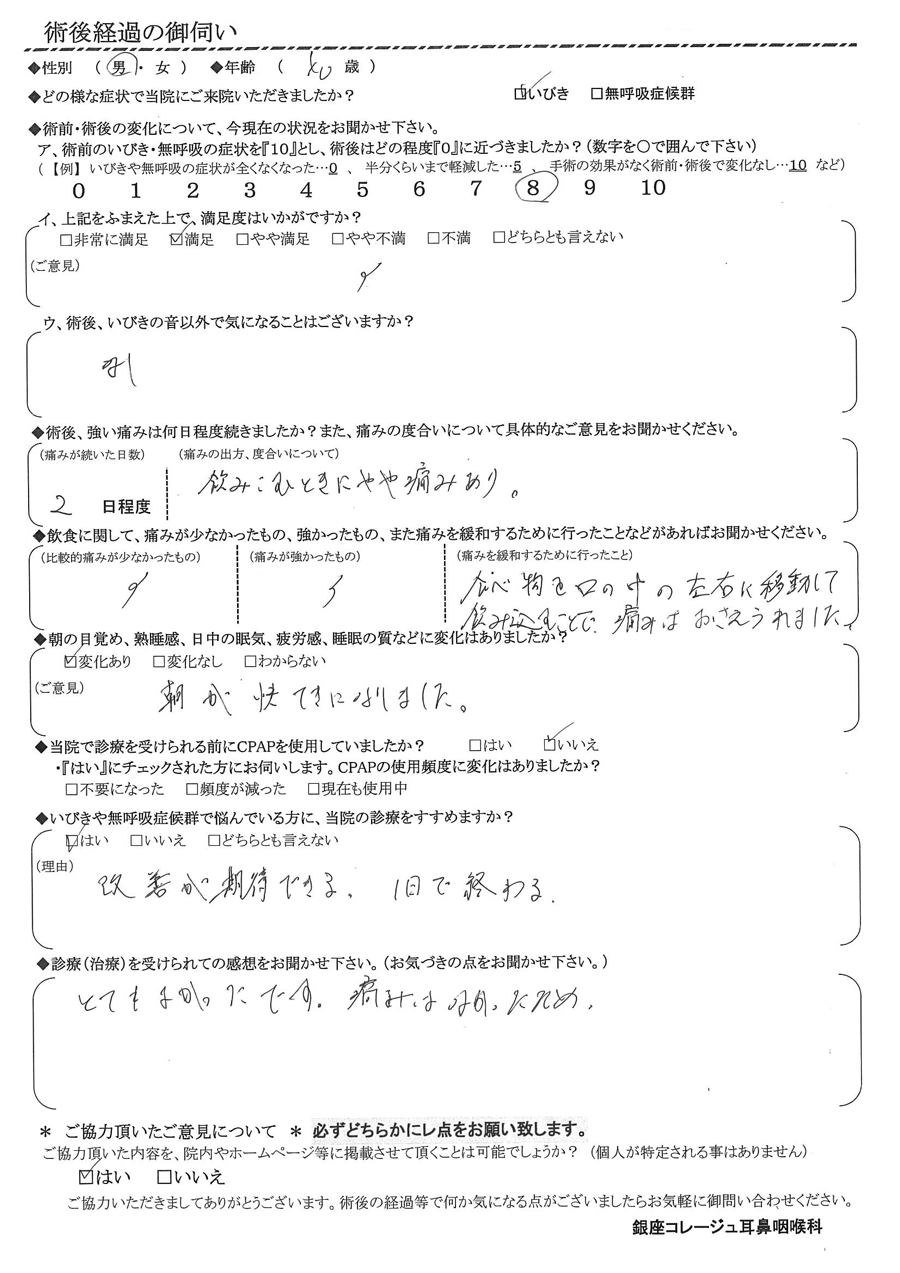 術後経過の御伺い
◆性別 （ 男 ・ 女 ） ◆年齢 （ 歳 ）
◆どの様な症状で当院にご来院いただきましたか？ ☑いびき □無呼吸症候群
◆術前・術後の変化について、今現在の状況をお聞かせ下さい。
ア、術前のいびき・無呼吸の症状を『10』とし、術後はどの程度『0』に近づきましたか？（数字を〇で囲んで下さい）
（【例】 いびきや無呼吸の症状が全くなくなった…0 、 半分くらいまで軽減した…5 、 手術の効果がなく術前・術後で変化なし…10 など）
0 1 2 3 4 5 6 7 8 9 10
イ、上記をふまえた上で、満足度はいかがですか？
□非常に満足 ☑満足 □やや満足 □やや不満 □不満 □どちらとも言えない
（ご意見）
ウ、術後、いびきの音以外で気になることはございますか？
なし
◆術後、強い痛みは何日程度続きましたか？また、痛みの度合いについて具体的なご意見をお聞かせください。
（痛みが続いた日数） （痛みの出方、度合いについて）
飲みこむときにやや痛みあり。
2 日程度
◆飲食に関して、痛みが少なかったもの、強かったもの、また痛みを緩和するために行ったことなどがあればお聞かせください。
（比較的痛みが少なかったもの） （痛みが強かったもの） （痛みを緩和するために行ったこと）
食べ物を口の中の左右に移動して
飲み込むことで、痛みはおさえられました。
◆朝の目覚め、熟睡感、日中の眠気、疲労感、睡眠の質などに変化はありましたか？
☑変化あり □変化なし □わからない
（ご意見）
朝が快てきになりました。
◆当院で診療を受けられる前にCPAPを使用していましたか？ □はい ☑いいえ
・『はい』にチェックされた方にお伺いします。CPAPの使用頻度に変化はありましたか？
□不要になった □頻度が減った □現在も使用中
◆いびきや無呼吸症候群で悩んでいる方に、当院の診療をすすめますか？
☑はい □いいえ □どちらとも言えない
（理由）
改善が期待できる。 1日で終わる。
◆診療（治療）を受けられての感想をお聞かせ下さい。（お気づきの点をお聞かせ下さい。）
とてもよかったです。痛みはなかったため。
＊ ご協力頂いたご意見について ＊ 必ずどちらかにレ点をお願い致します。
ご協力頂いた内容を、院内やホームページ等に掲載させて頂くことは可能でしょうか？ （個人が特定される事はありません）
☑はい □いいえ
ご協力いただきましてありがとうございます。術後の経過等で何か気になる点がございましたらお気軽に御問い合わせください。
銀座コレージュ耳鼻咽喉科